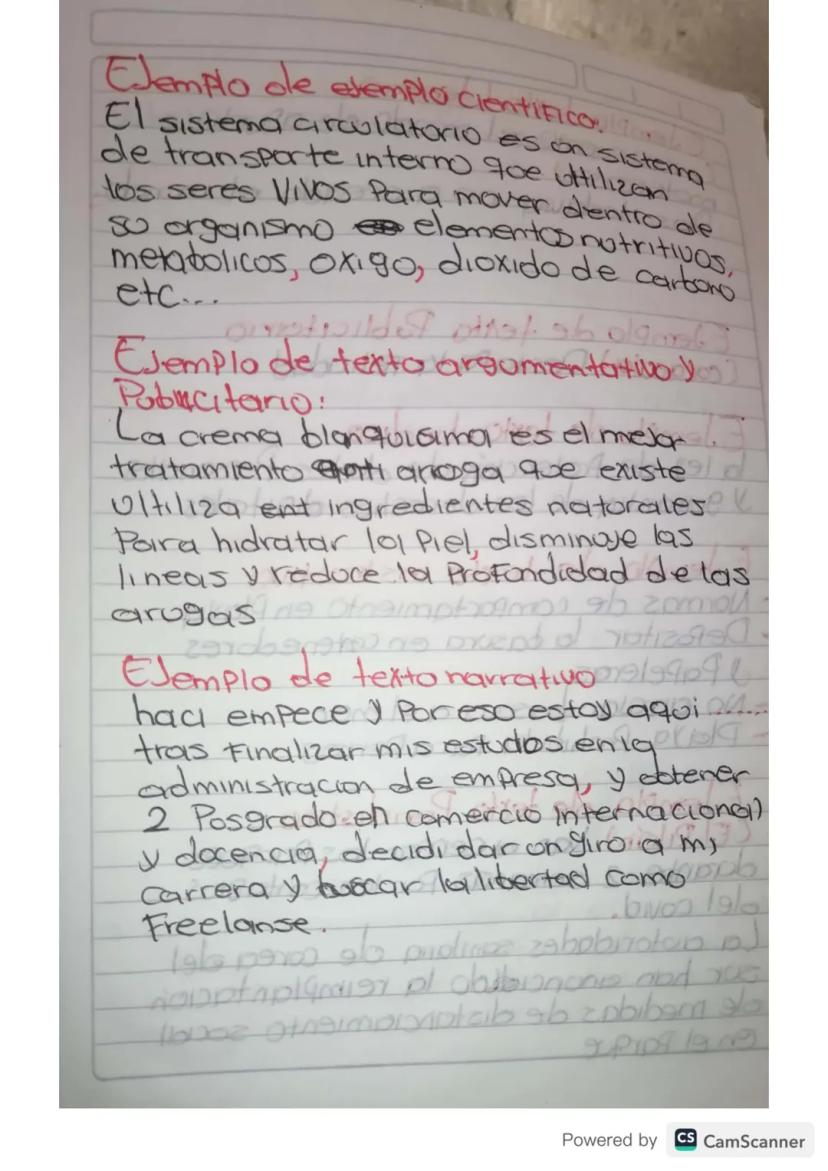 Ejemplo de ejemplo cientifico.
El sistema circulatorio es un sistema
de transporte interno que uttilizan
los seres vivos para mover dentro de
su organismo elementos nutritivos,
metabolicos, oxigo, dioxido de carbono
etc...
Ejemplo de texto argumentativo y
Publicitario:
La crema blanquisima es el mejor
tratamiento anti aroga que existe
Ultiliza ent ingredientes naturales
Para hidratar la piel, disminuye las
lineas y reduce la profondidad de las
arugas
Ejemplo de texto narrativo
haci empece y por eso estoy aqui ......
tras finalizar mis estudos en la
administracion de empresa, y obtener
2 Posgrado en comercio internacional
y docencia, decidi dar un giro a mi
carrera y buscar la libertad como
Freelanse.
Powered by CS CamScanner